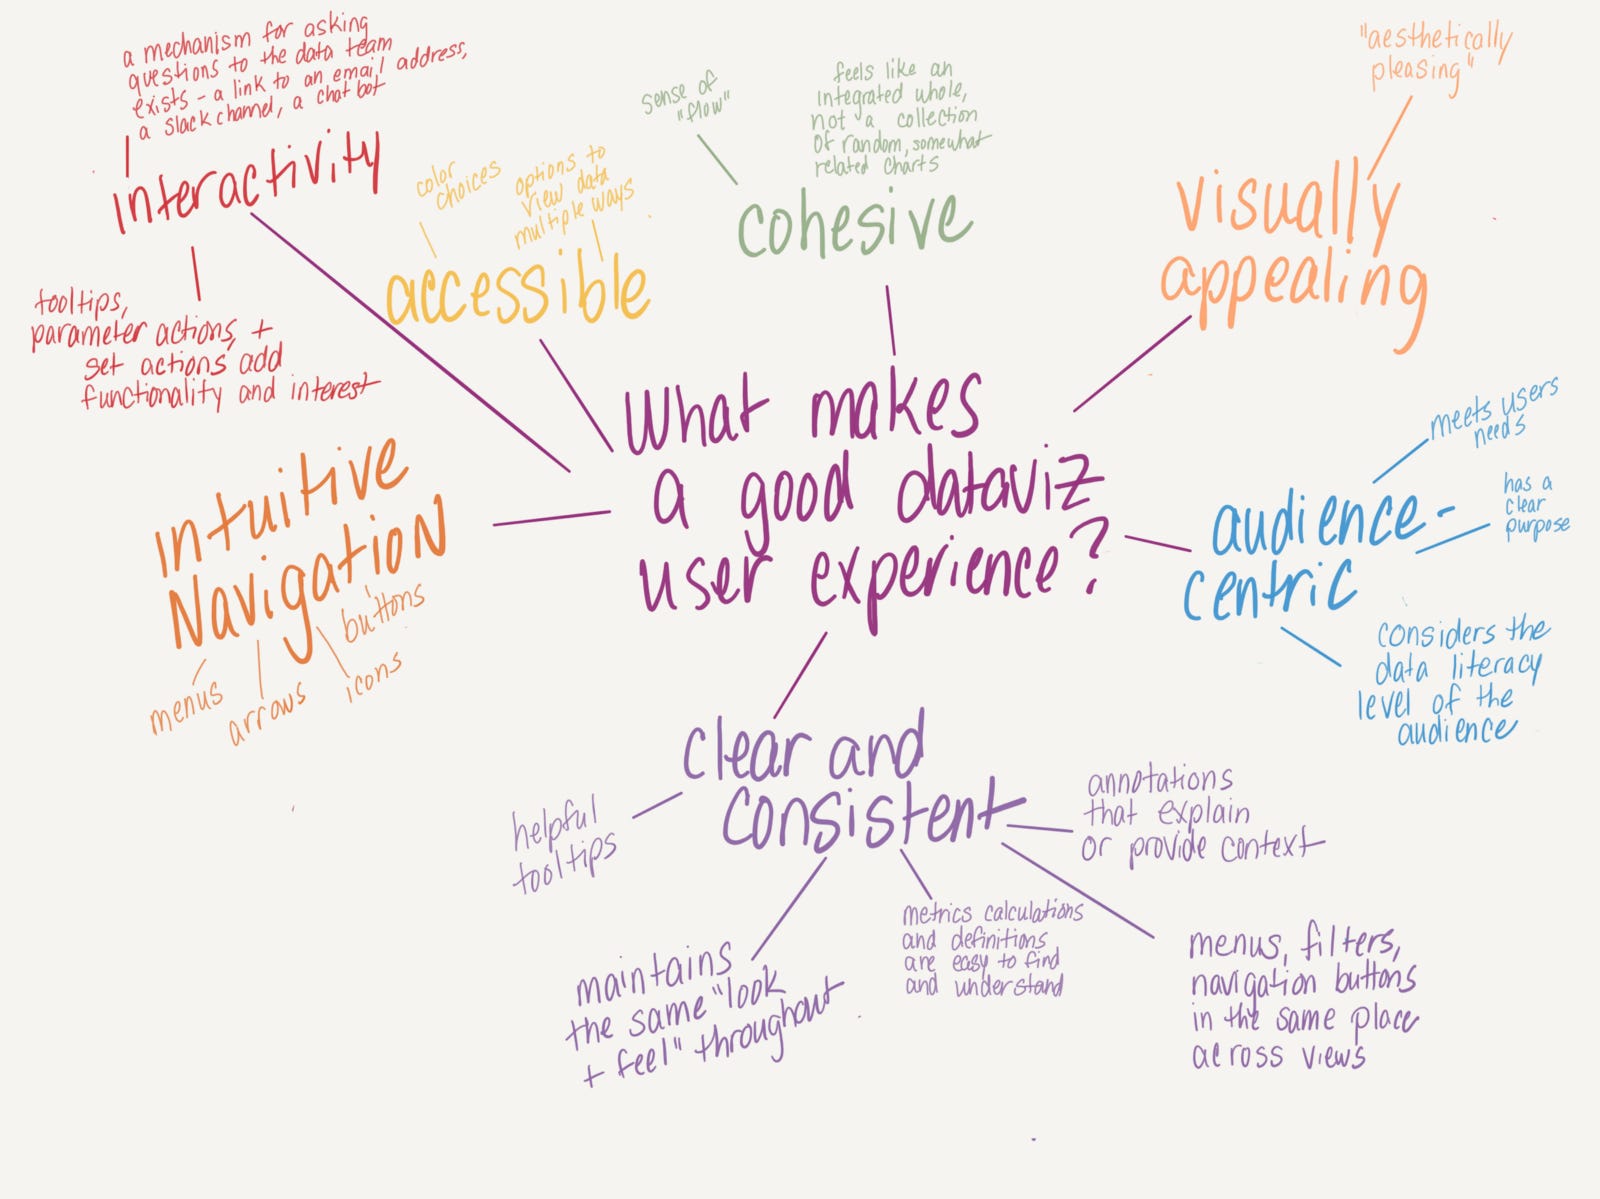 a mechanism for asking
questions to the data team
exists - a link to an email address,
a slack channel, a chat bot
interactivity
tooltips,
parameter actions, +
set actions add
functionality and interest
color
choices
options to
view data
multiple ways
accessible
sense of
"flow"
feels like an
integrated whole,
not a collection
of random, somewhat
related charts
cohesive
"aesthetically
pleasing"
visually
appealing
What makes
a good dataviz
user experience?
intuitive
Navigation
menus
arrows
icons
buttons
meets users
needs
has a
clear
purpose
audience-
centric
considers the
data literacy
level of the
audience
clear and
consistent
helpful
tooltips
maintains
the same "look
+ feel" throughout
metrics calculations
and definitions
are easy to find
and understand
annotations
that explain
or provide context
menus, filters,
navigation buttons
in the same place
across views